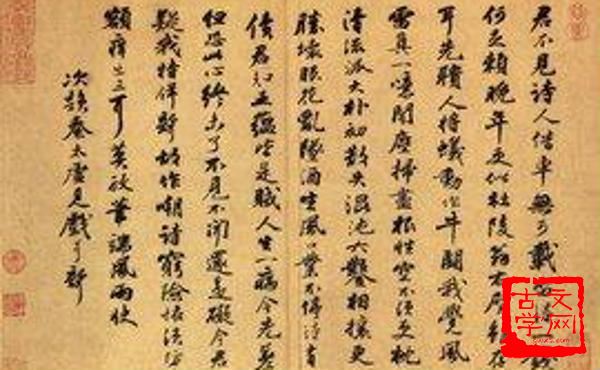 君不見詩人借車無可載留得一錢
何足賴晚年更似杜陵翁右臂雖存
耳先聵人將蟻動作牛鬭我覺風
雷真一噫聞塵掃盡根性空不須更枕
清流派大朴初散失混沌六鑿相攘更
勝壞眼花亂墜酒生風口業不停詩有
債君知五蘊皆是賊人生一病今先差
但恐此心終未了不見不聞還是礙今君
疑我特佯聾故作嘲詩窮險怪須防
額癢出三耳莫放筆端風雨快
次韻秦太虛見戲耳聾
古文
学网